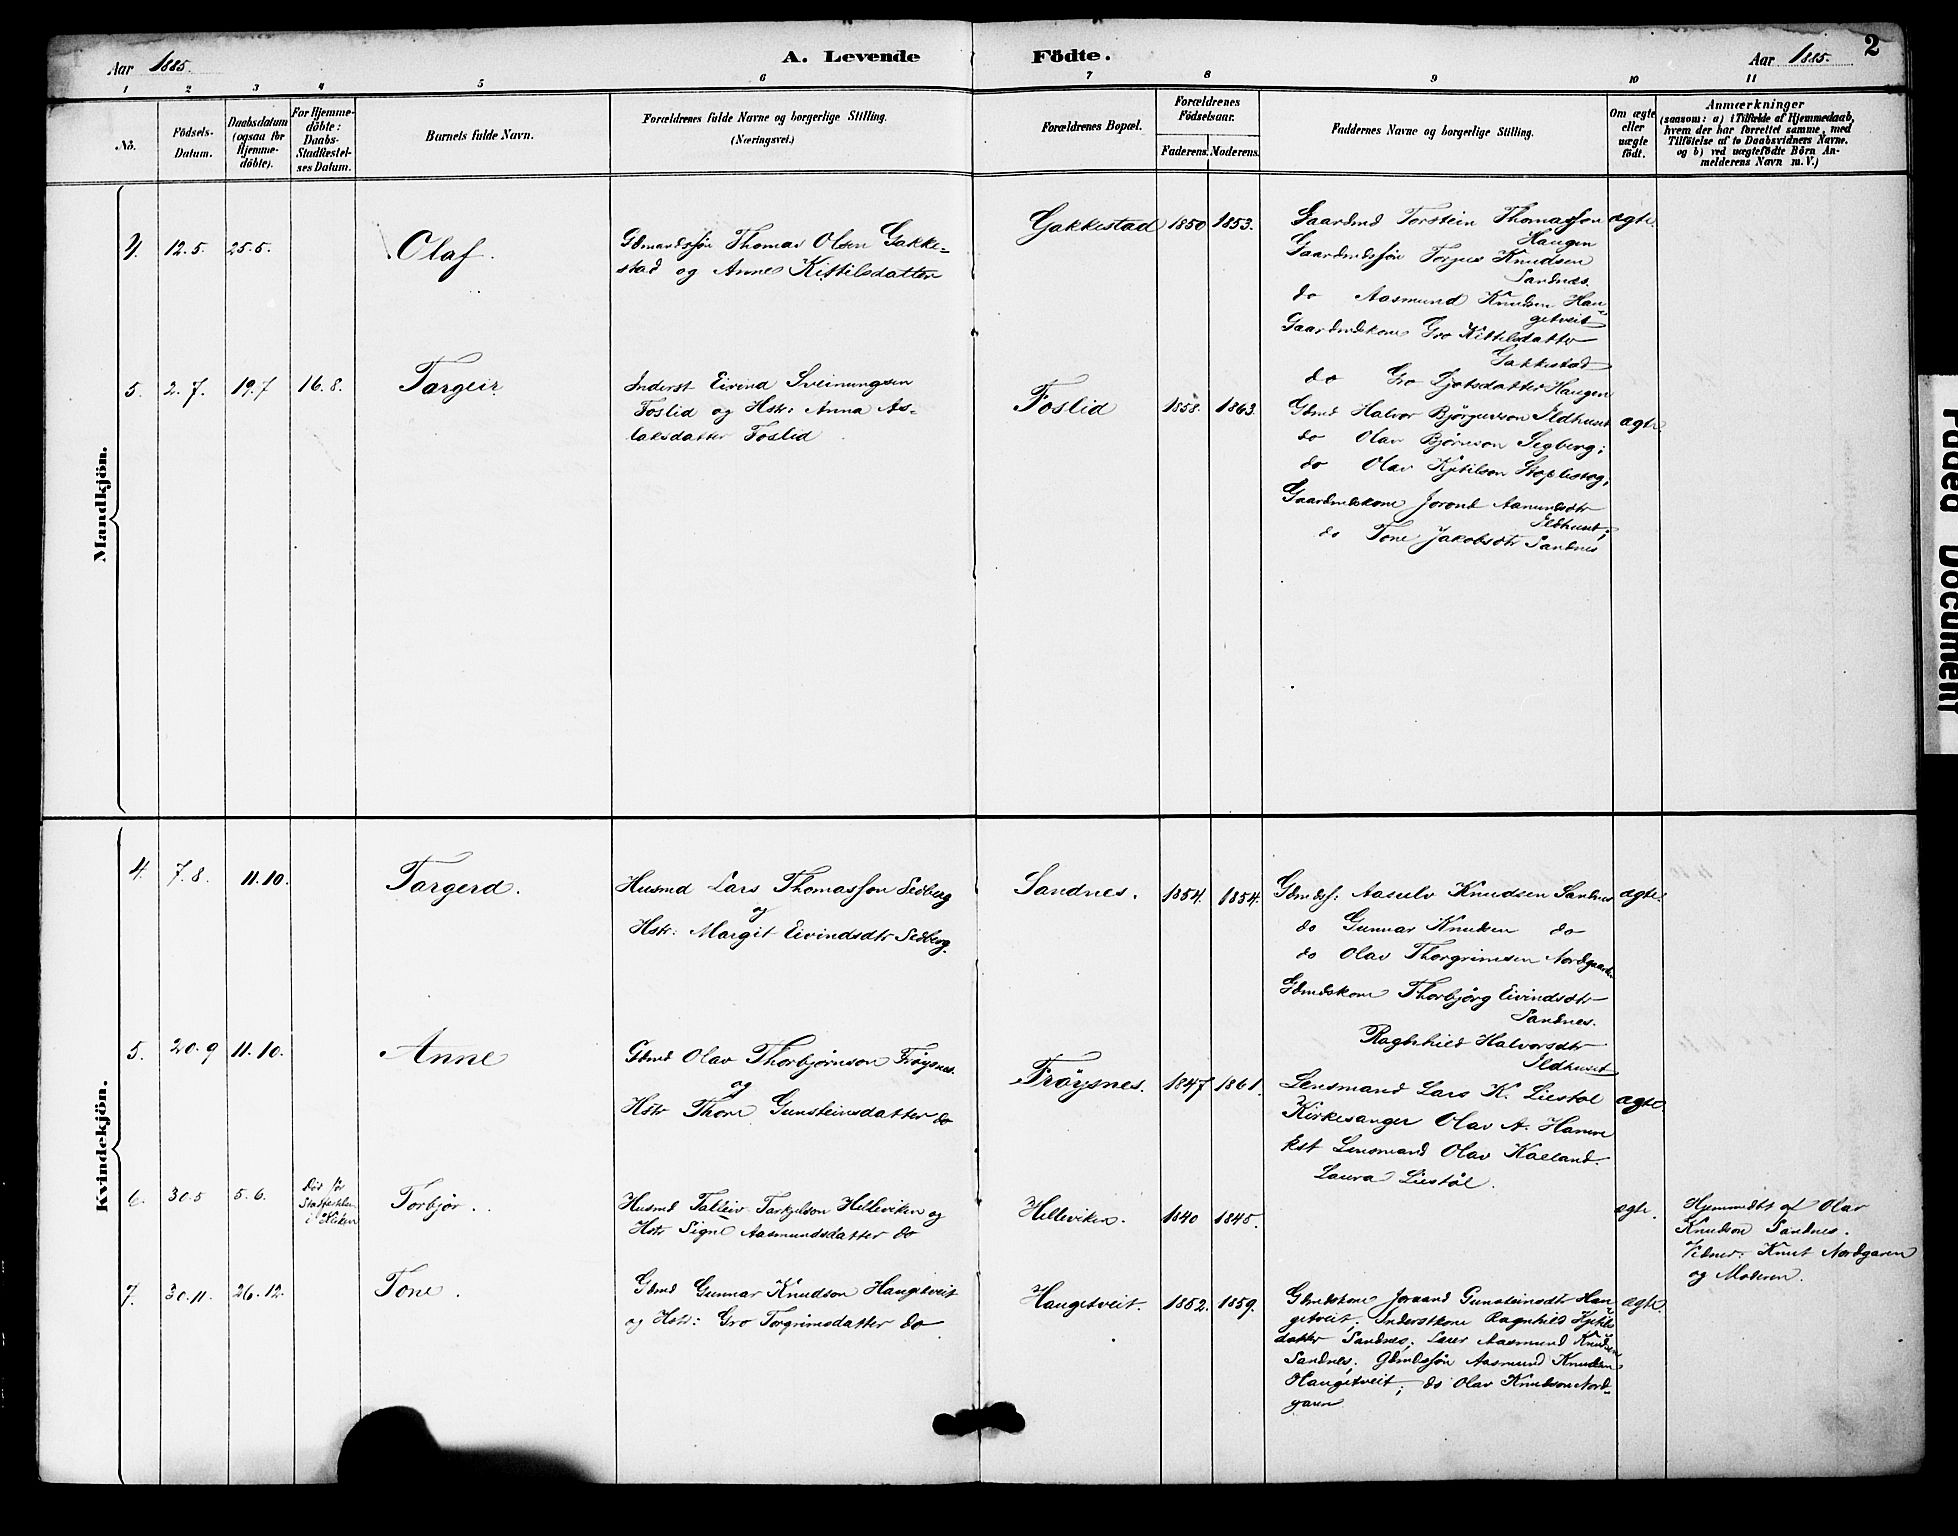 Aar 1885.
A. Levende Födte.
Aar 1885.
2
1 2 3 4 5 6 7 8 9 10 11
No.
Födsels-
Datum.
Daabsdatum
(ogsaa for
Hjemme-
döbte).
For Hjemme-
döbte:
Daabs-
Stadfæstel-
ses Datum.
Barnets fulde Navn.
Forældrenes fulde Navne og borgerlige Stilling.
(Næringsvei.)
Forældrenes Bopæl.
Forældrenes
Födselsaar.
Faderens. Moderens.
Faddernes Navne og borgerlige Stilling.
Om ægte
eller
uægte
födt.
Anmærkninger
(saasom: a) i Tilfælde af Hjemmedaab,
hvem der har forrettet samme, med
Tilföielse af to Daabsvidners Navne.
og b) ved uægtefödte Börn An-
melderens Navn m. V.)
Mandkjön.
4. 12.5. 25.5. Olaf.
Gdmandssøn Thomas Olsen Gakke-
stad og Anne Kittilsdatter
Gakkestad 1850 1853.
Gaardmd Torstein Thomassson
Haugen
Gaardmdssøn Torjus Knudsen
Sandnes.
do Aasmund Knudsen Hau-
getveit
Gaardmdskone Gro Kittilsdatter
Gakkestad
do Gro Haugen
ægte.
5. 2.7. 19.7 16.8. Targeir
Inderst Eivind Sveinungsen
Foslid og Hstr: Anna As-
laksdatter Foslid
Foslid 1858. 1863.
Gdmd Halvor Bjørguvson Ildhuset
do Olav Bjørnson Segberg;
do Olav Kjetilson Stoplestog;
Gaardmdskone Jorond Aamundsdtr
Ildhuset;
do Tone Jakobsdtr Sandnes
ægte.
Kvindekjön.
4. 7.8. 11.10. Targerd.
Husmd Lars Thomasson Sedberg
og
Hstr: Margit Eivindsdtr Sedberg.
Sandnes. 1854. 1854.
Gdmdsf: Aasulv Knudsen Sandnes
do Gunnar Knudsen do
do Olav Thorgrimsen Nordgaarden
Gdmdskone Thorbjørg Eivindsdtr
Sandnes.
Ragnhild Halvorsdtr
Ildhuset
ægte.
5. 20.9 11.10. Anne
Gdmd Olav Thorbjørnson Frøysnes.
og
Hstr Thore Gunsteinsdatter do
Frøysnes. 1847 1861.
Lensmand Lars K. Liestøl
Kirkesanger Olav A. Hamre
kst Lensmand Olav Kaeland.
Laura Liestøl.
ægte.
6. 30.5 5.6. Død før
Stadfæstelsen
i Kirken
Torbjør.
Husmd Talleiv Tarkjelson Helleviken og
Hstr Signe Aasmundsdatter do
Helleviken. 1840 1845.
ægte.
Hjemmedbt af Olav
Knudson Sandnes.
Vidner: Knut Nordgaren
og Moderen.
7. 30.11. 26.12. Tone.
Gdmd Gunnar Knudson Haugetveit
og Hstr: Gro Torgrimsdatter do
Haugetveit. 1852. 1859.
Gdmdskone Joraand Gunsteinsdtr Hau-
getveit; Inderstkone Ragnhild Kjetils
datter Sandnes; Lærer Aasmund Knudsen
Sandnes; Gdmdssøn Aasmund Knudsen
Haugetveit; do Olav Knudson Nord-
garen
ægte.
Faded Document